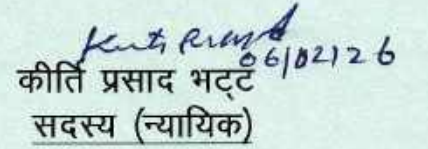 Kirti Prasad
06/02/26
कीर्ति प्रसाद भट्ट
सदस्य (न्यायिक)